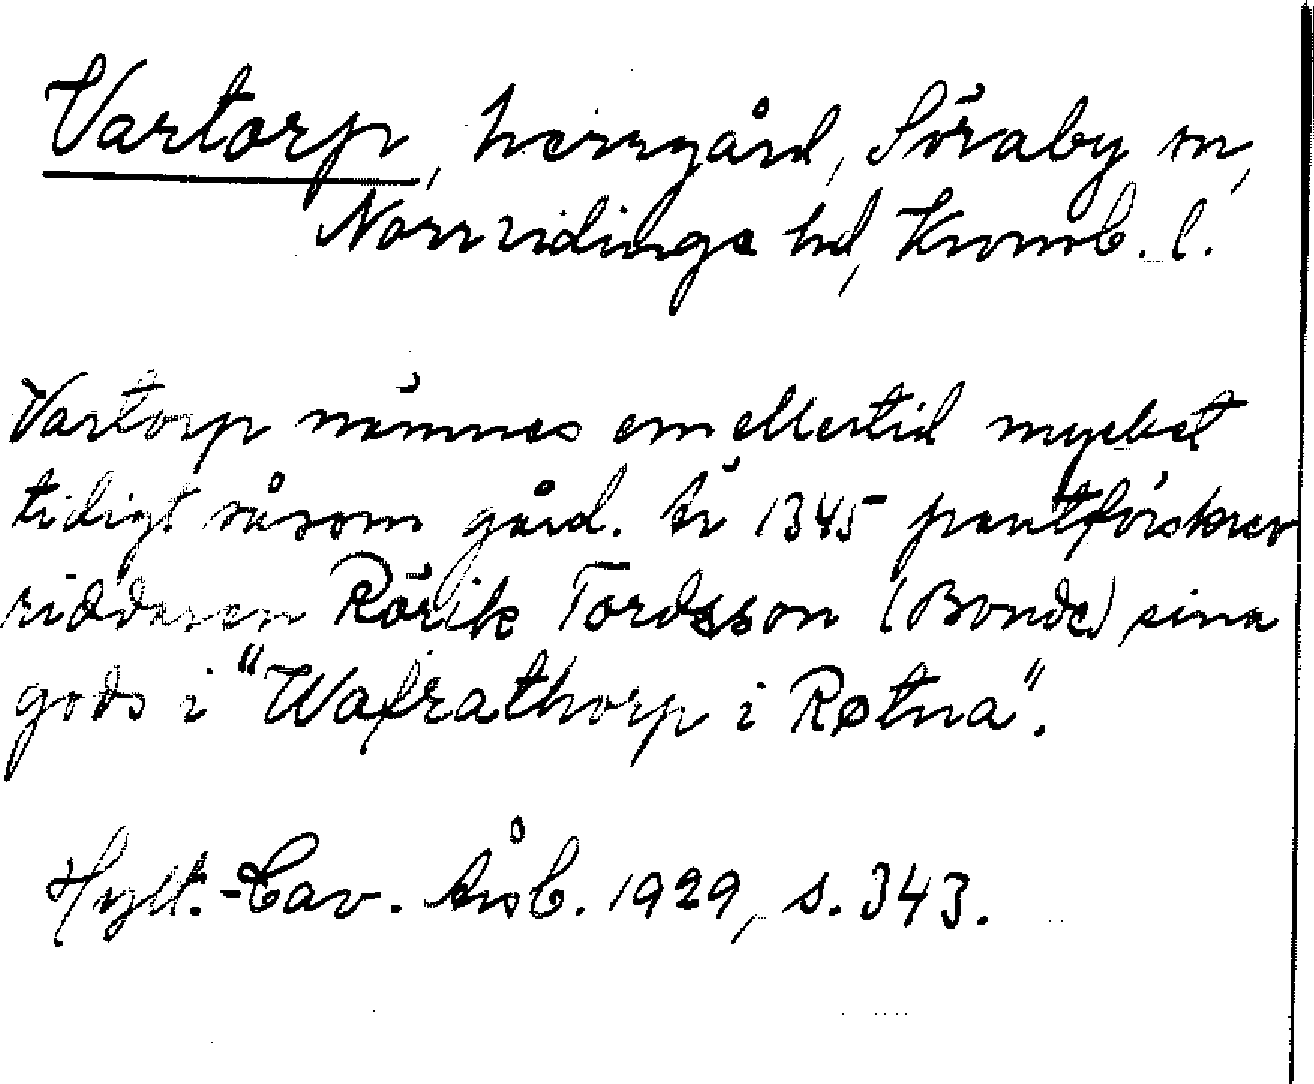 Vartorp, herrgård, Söraby sn,
Norrvidinge hd, Kronob. l.
Vartorp nämnes emellertid mycket
tidigt såsom gård. År 1345 pantförskrev
riddaren Rörik Tordsson (Bonde) sina
gods i "Wafrathorp i Røtna".
Hylt.-Cav. Årsb. 1929, s. 343.